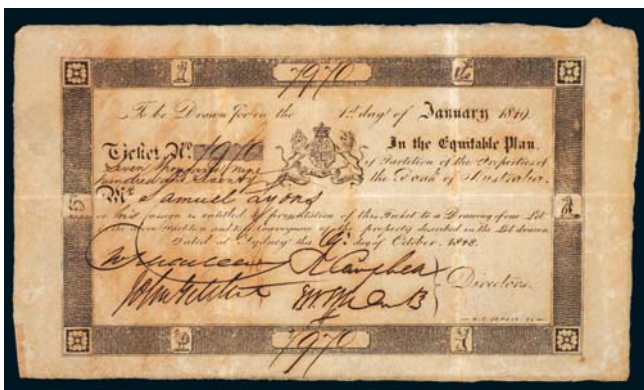 7970
To be Drawn for on the 1st day of January 1849.
Ticket No. 7970 In the Equitable Plan.
Seven thousand nine of Partition of the Properties of
hundred and seventy the Bank of Australia.
Mr. Samuel Lyons
or his Assign is entitled on presentation of this Ticket to a Drawing of one Lot
in the above Partition and to a Conveyance of the property described in the Lot drawn
Dated at Sydney this 19th day of October 1848.
Campbell
Directors.
7970